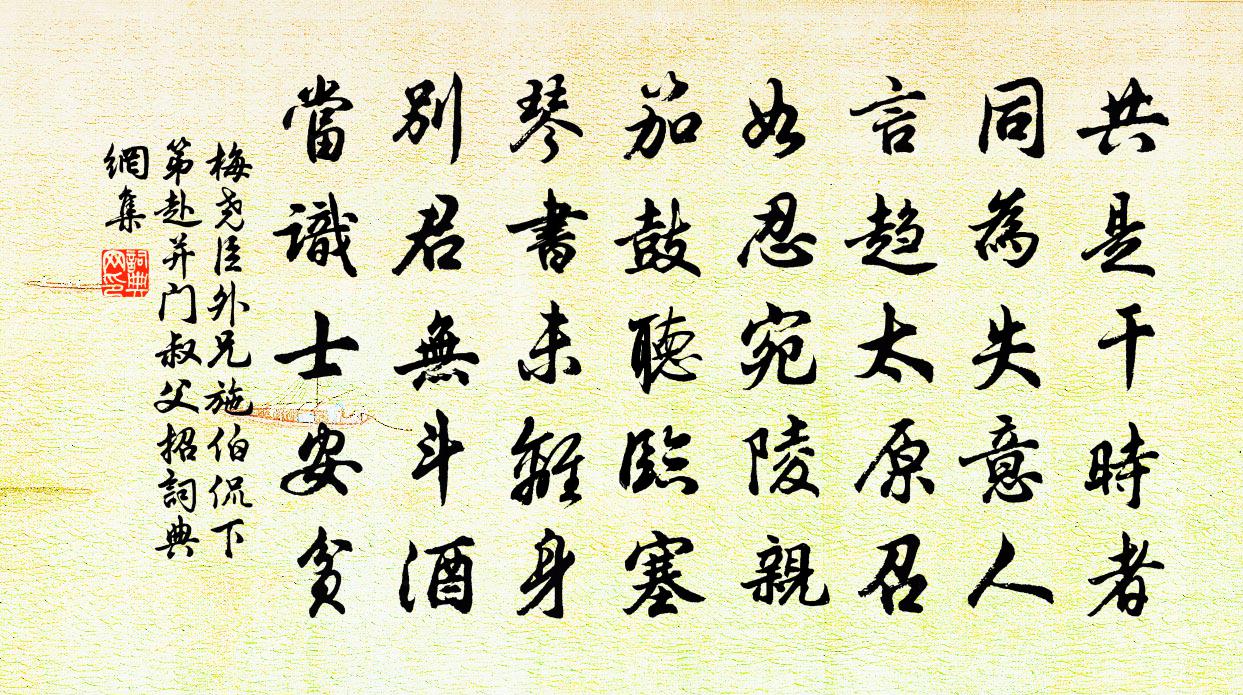 共是干時者
同為失意人
言趋太原召
如忍宛陵親
笳鼓聽臨塞
琴書未離身
別君無斗酒
當識士安貧
梅尧臣外兄施伯侃下
第赴并门叔父招詞典
網集
詞典
网印